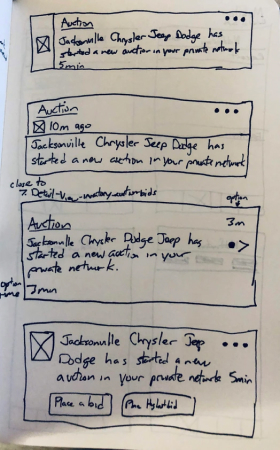 Auction
Jacksonville Chrysler Jeep Dodge has
started a new auction in your private network
5min
Auction
10m ago
Jacksonville Chrysler Jeep Dodge has
started a new auction in your private network
close to
option
Auction
3m
Jacksonville Chrysler Dodge Jeep has
started a new auction in your
private network.
option
7min
Jacksonville Chrysler Jeep
Dodge has started a new
auction in your private network 5min
Place a bid
bid